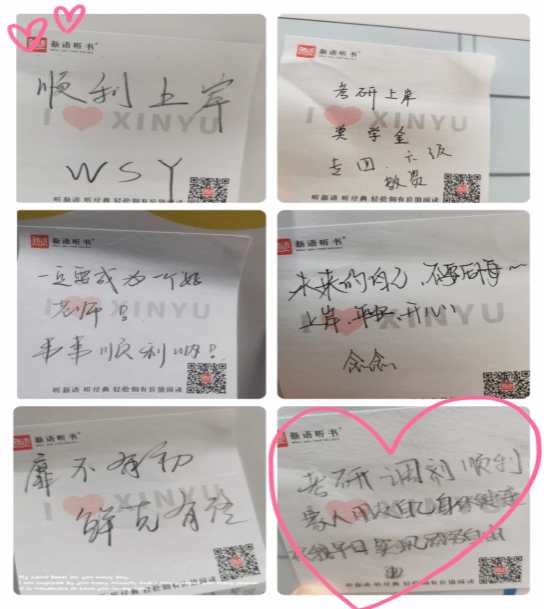 新语听书
顺利上岸
I ❤ XINYU
WSY
听新语 听经典 轻松拥有价值阅读
新语听书
考研上岸
I ❤ XINYU
奖学金
专四、六级
教资
听新语 听经典 轻松拥有价值阅读
新语听书
一定要成为一个好
老师!
I XINYU
事事顺利哟!
听新语 听经典 轻松拥有价值阅读
未来的自己,不要后悔~
上岸、平安、开心!
I XINYU
念念
听新语 听经典 轻松拥有价值阅读
新语听书
靡不有初
I XINYU
鲜克有终
新语听书
考研调剂顺利
家人朋友自己身体健康
实现